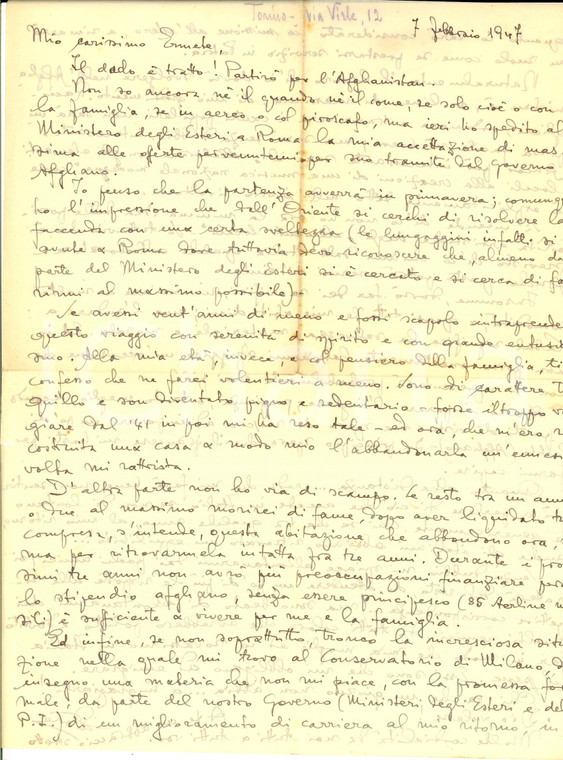 Torino - Via Virle, 12
7 Febbraio 1947
Mio carissimo Ermete,
Il dado è tratto! Partirò per l'Afghanistan.
Non so ancora nè il quando nè il come, se solo cioè o con
la famiglia, se in aereo o col piroscafo, ma ieri ho spedito al
Ministero degli Esteri a Roma la mia accettazione di mas
sima alle offerte pervenutemi per suo tramite dal Governo
Afghano.
Io penso che la partenza avverrà in primavera; comunqu
ho l'impressione che dall'Oriente si cerchi di risolvere la
faccenda con una certa sveltezza (le lungaggini infatti si
avute a Roma dove tuttavia devo riconoscere che, almeno da
parte del Ministero degli Esteri si è cercato e si cerca di fa
rirmi al massimo possibile).
Se avessi vent'anni di meno e fossi scapolo intraprende
questo viaggio con serenità di spirito e con grande entusi
smo. Alla mia età, invece, e col pensiero della famiglia, ti
confesso che ne farei volentieri a meno. Sono di carattere T
quillo e son diventato pigro e sedentario - forse il troppo v
giare dal '41 in poi mi ha reso tale - ed ora, che m'ero,
costruita una casa a modo mio l'abbandonarla un'ennesi
volta mi rattrista.
D'altra parte non ho via di scampo. Se resto tra un ann
o due al massimo morirei di fame, dopo aver liquidato t
compresa, s'intende, questa abitazione che abbandono ora,
ma per ritrovarmela intatta fra tre anni. Durante i pro
simi tre anni non avrò più preoccupazioni finanziarie per
lo stipendio afghano, senza essere principesco (85 sterline m
sili) è sufficiente a vivere per me e la famiglia.
Ed infine, se non soprattutto, tronco la incresciosa situ
zione nella quale mi trovo al Conservatorio di Milano, d
insegno una materia che non mi piace, con la promessa for
male, da parte del nostro Governo (Ministeri degli Esteri e del
P.I.) di un miglioramento di carriera al mio ritorno, in